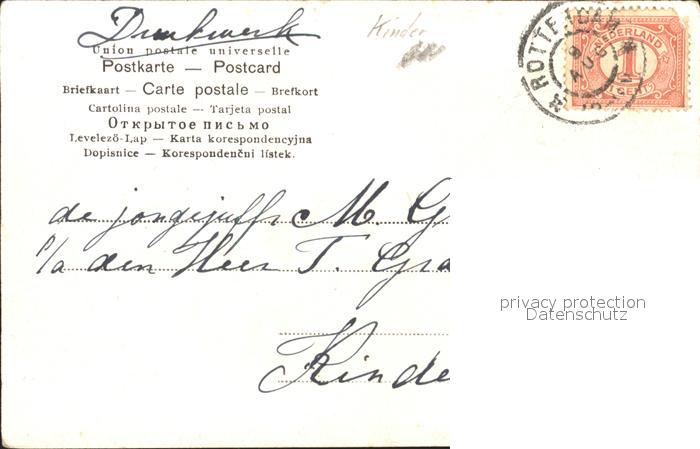 Drukwerk
Kinder
Union postale universelle
Postkarte — Postcard
Briefkaart — Carte postale — Brefkort
Cartolina postale — Tarjeta postal
Открытое письмо
Levelező-Lap — Karta korespondencyjna
Dopisnice — Korespondenční lístek.
ROTTERDAM
AUG
NEDERLAND
1
CENT
de jongejuffr M. G
p/a den Heer T. Gra
Kinde
privacy protection
Datenschutz